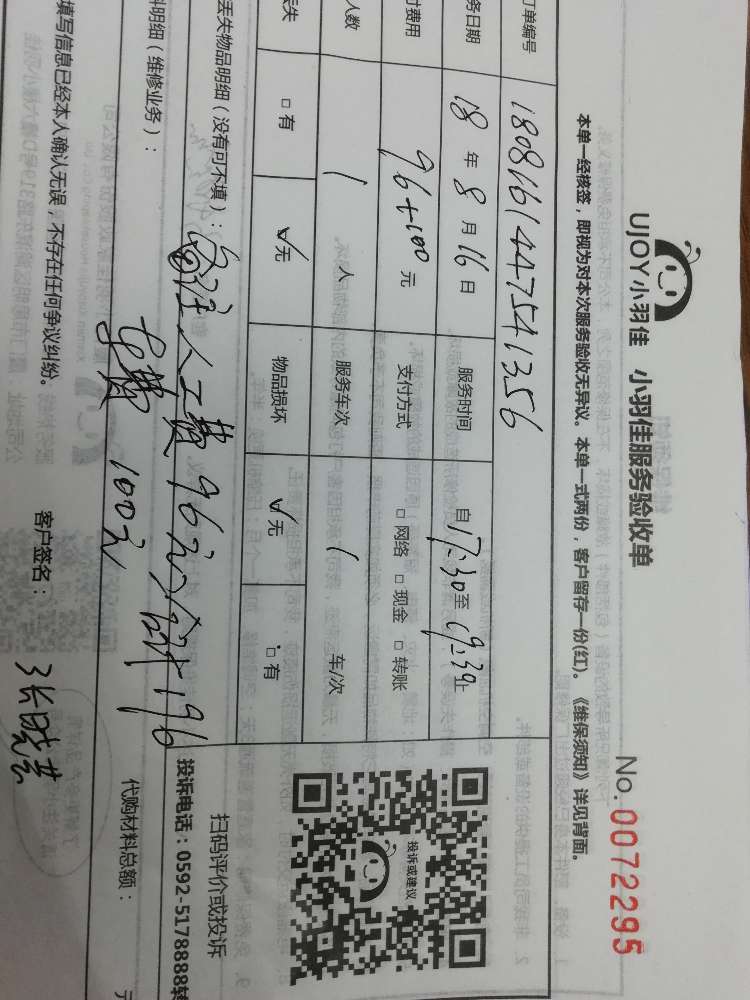 UJOY小羽佳 小羽佳服务验收单
No. 0072295
本单一经核签，即视为对本次服务验收无异议。本单一式两份，客户留存一份(红)。《维保须知》详见背面。
订单编号 180816144754 1356
务日期 18 年 8 月 16 日 服务时间 自 17:30 至 19:30 止
付费用 96+100 元 支付方式 □ 网络 □ 现金 □ 转账
人数 1 人 服务车次 1 车/次
丢失 □ 有 ☑ 无 物品损坏 ☑ 无 □ 有
投诉或建议
扫码评价或投诉
投诉电话：0592-5178888转
丢失物品明细（没有可不填）：备注人工费 96元 合计196
车费 100元
料明细（维修业务）：
代购材料总额： 元
填写信息已经本人确认无误，不存在任何争议纠纷。 客户签名：张晓芸